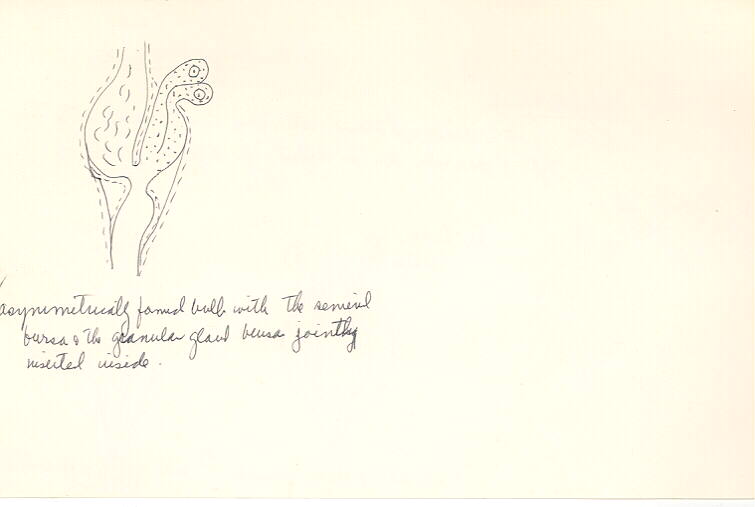 asymmetrically formed bulb with the seminal
bursa & the granular gland bursa jointly
inserted inside.